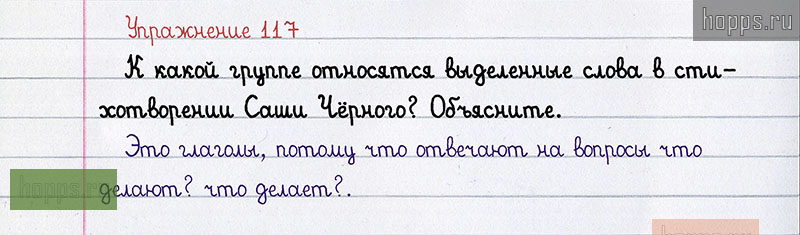 hopps.ru
Упражнение 117
К какой группе относятся выделенные слова в сти-
хотворении Саши Чёрного? Объясните.
Это глаголы, потому что отвечают на вопросы что
делают? что делает?.
hopps.ru